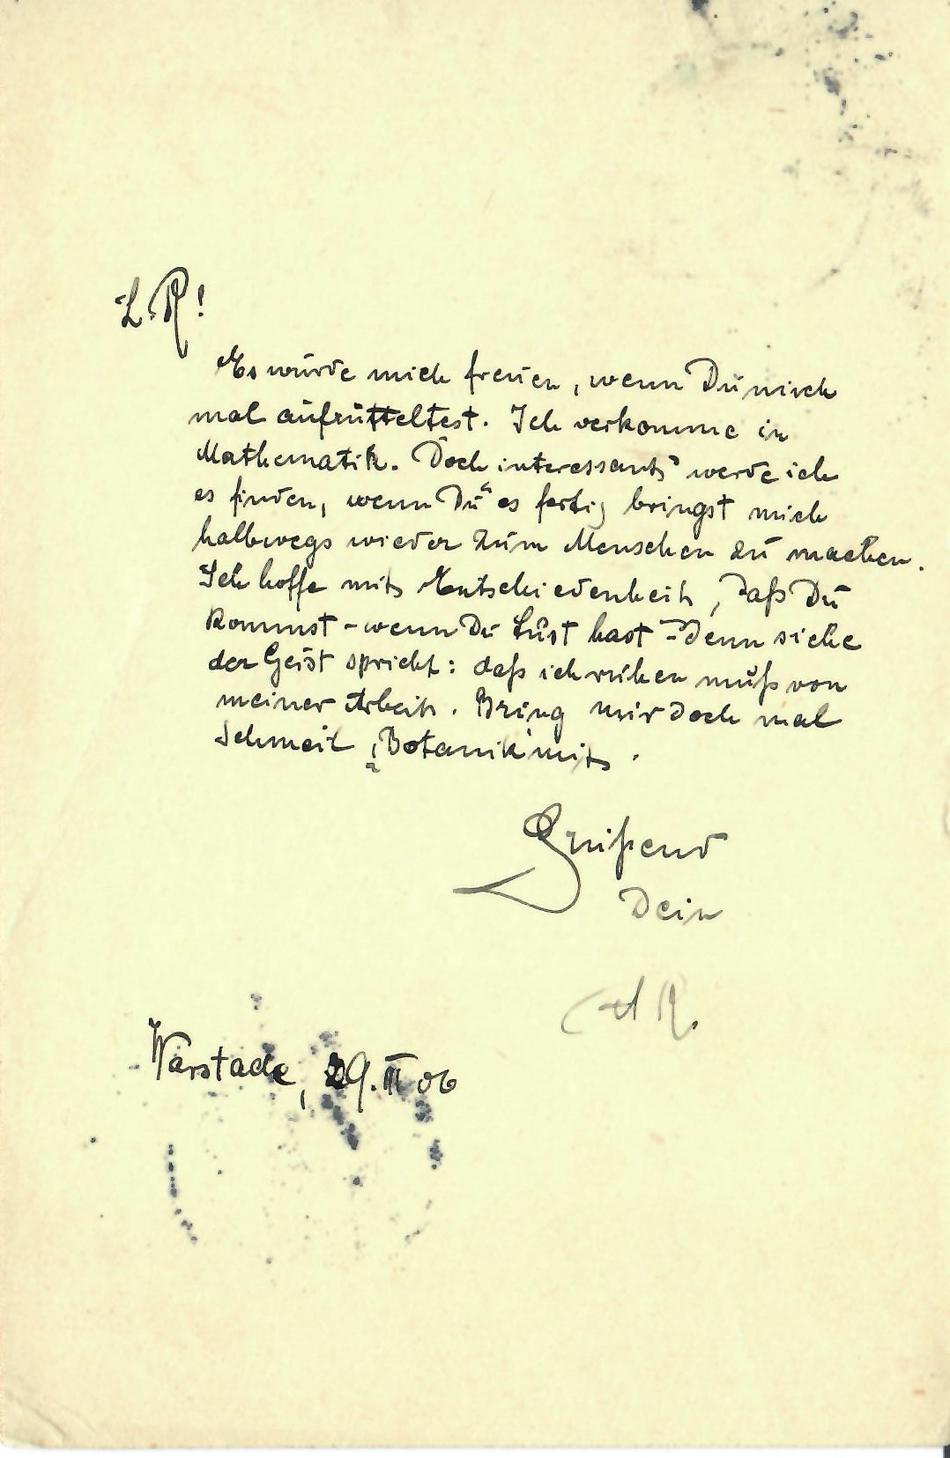 L. R!
Es würde mich freuen, wenn Du mich
mal aufrütteltest. Ich verkomme in
Mathematik. Doch interessant werde ich
es finden, wenn Du es fertig bringst mich
halbwegs wieder zum Menschen zu machen.
Ich hoffe mit Entschiedenheit, daß Du
kommst - wenn Du Lust hast - denn siehe
der Geist spricht: daß ich ruhen muß von
meiner Arbeit. Bring mir doch mal
Schmeil „Botanik" mit.
Grüßend
Dein
R.
Warstade, 29. III 06